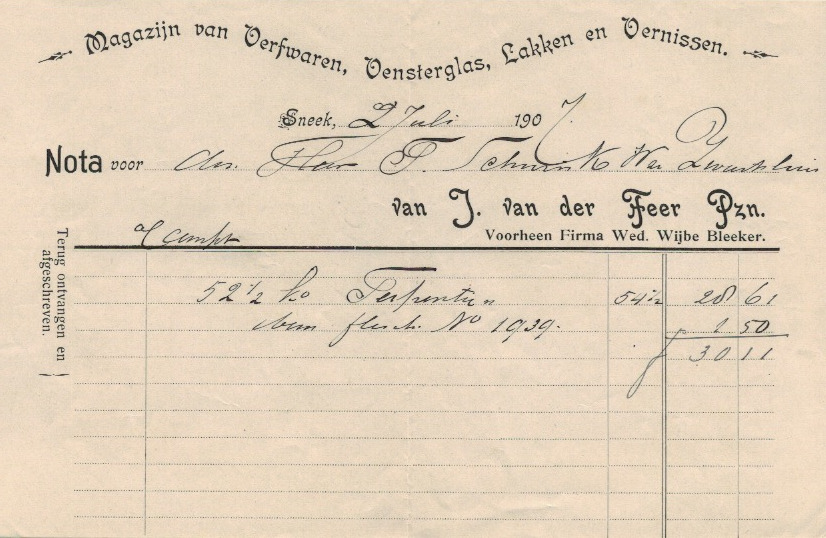 Magazijn van Verfwaren, Vensterglas, Lakken en Vernissen.
Sneek, 2 Juli 1907.
Nota voor den Heer T. Schuurink Wzn Zwartsluis
van J. van der Feer Pzn.
Voorheen Firma Wed. Wijbe Bleeker.
Terug ontvangen en
afgeschreven.
a/ compt
52 1/2 ko Terpentijn 54 1/2 28 61
flesch No 1939. 1 50
f 30 11